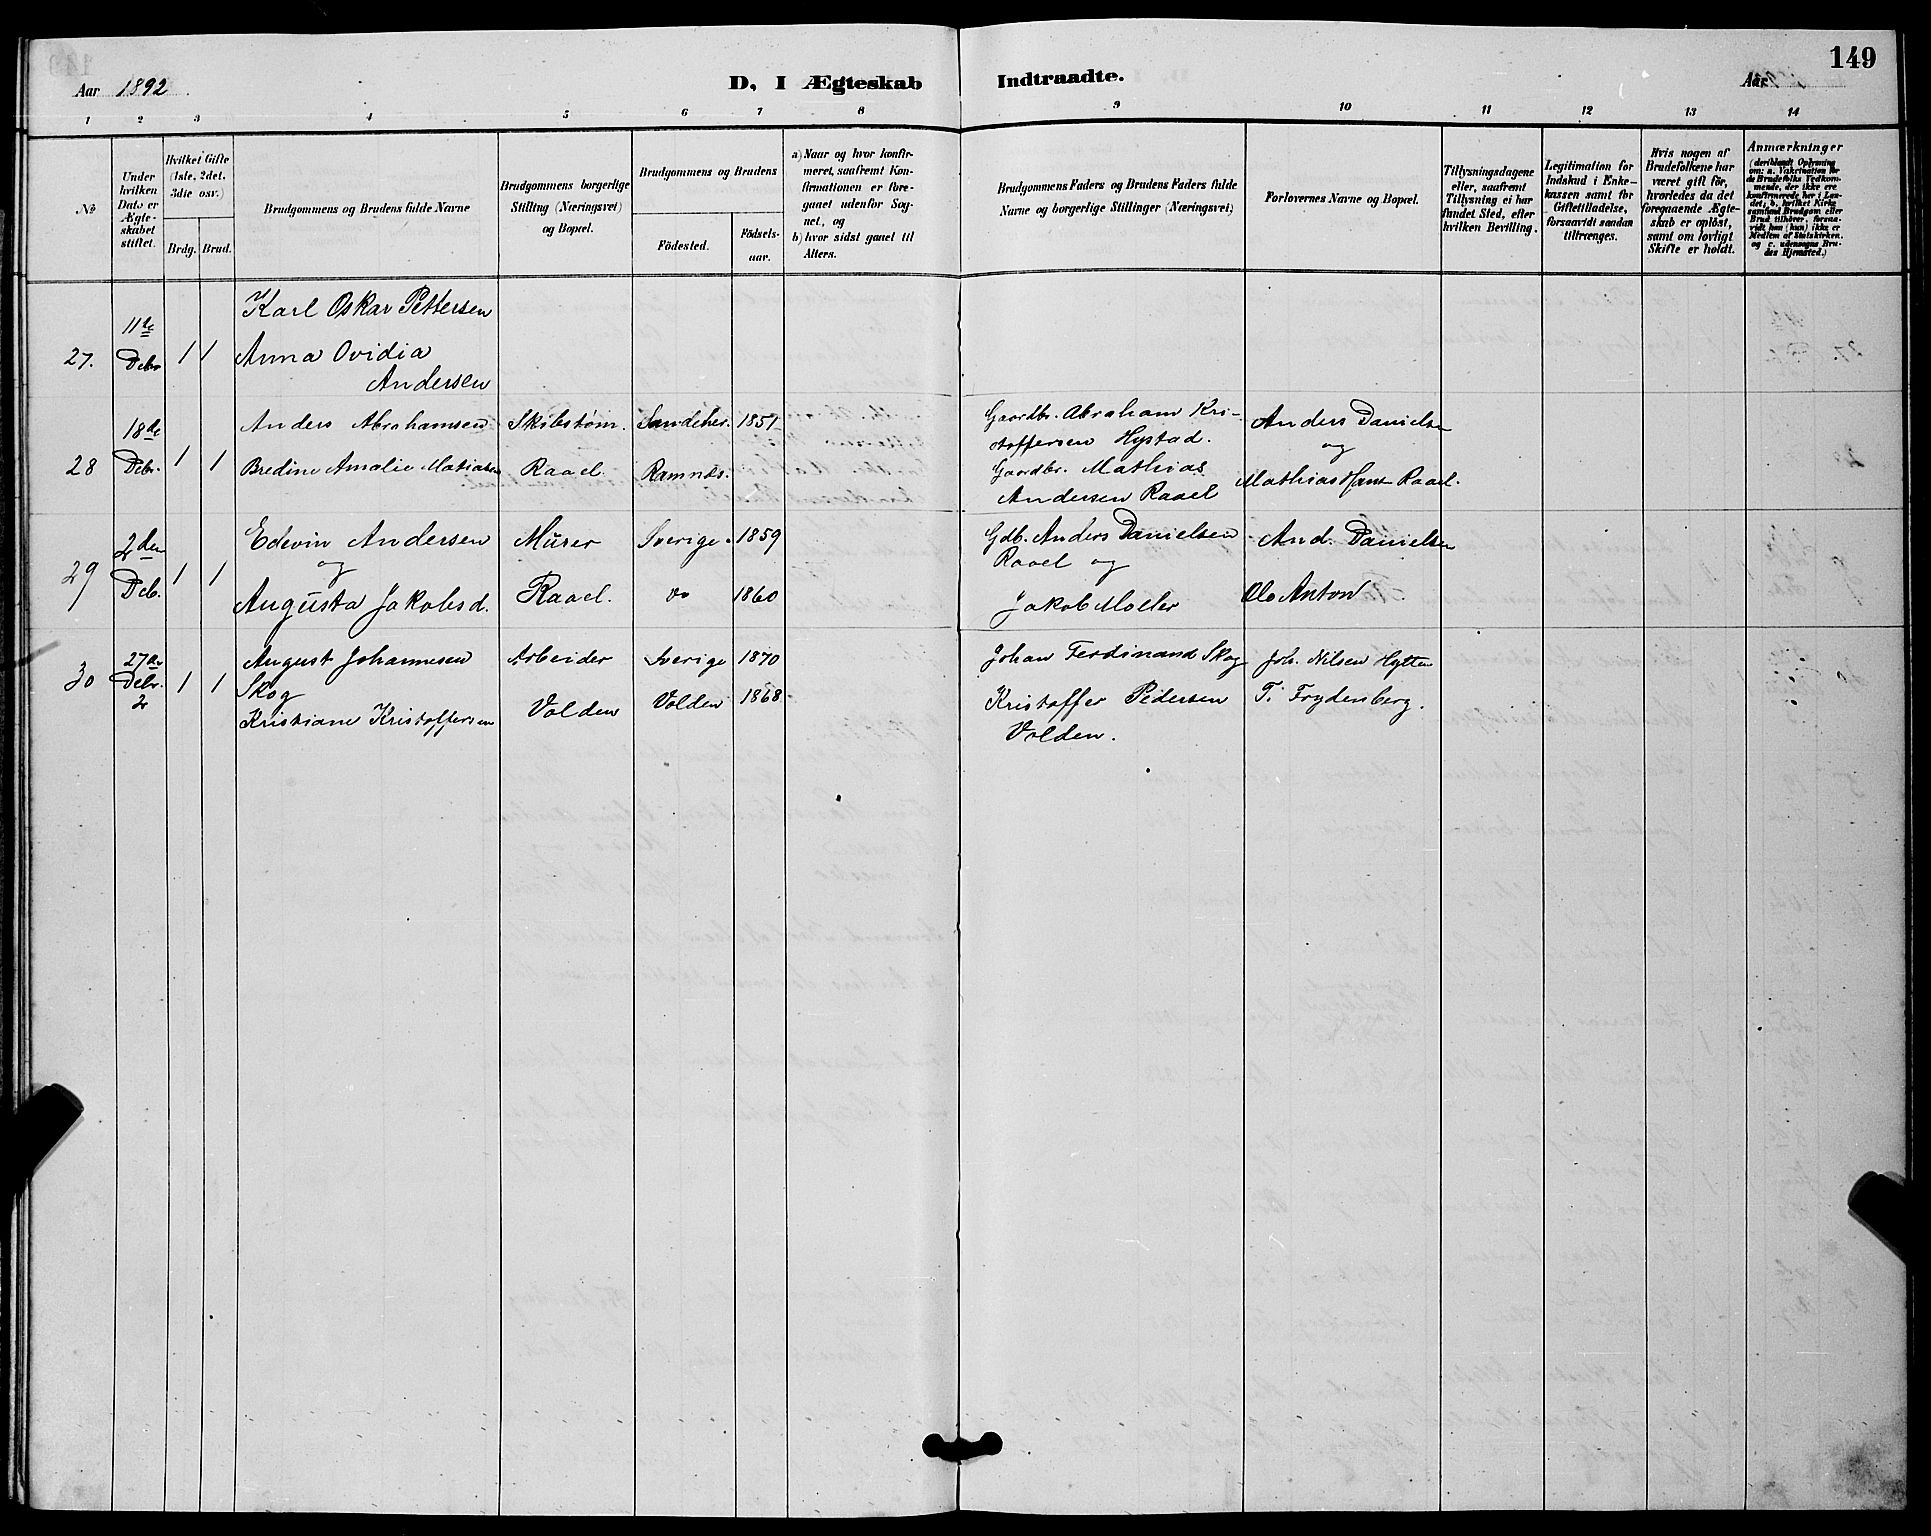 149
Aar 1892
D, I Ægteskab Indtraadte.
Aar
1 2 3 4 5 6 7 8 9 10 11 12 13 14
No
Under hvilken Dato er Ægteskabet stiftet.
Hvilket Gifte (1ste, 2det, 3die osv.)
Brdg. Brud.
Brudgommens og Brudens fulde Navne
Brudgommens borgerlige Stilling (Næringsvei) og Bopæl.
Brudgommens og Brudens
Födested.
Födselsaar.
a) Naar og hvor konfirmeret, saafremt Konfirmationen er foregaaet udenfor Sognet, og
b) hvor sidst gaaet til Alters.
Brudgommens Faders og Brudens Faders fulde Navne og borgerlige Stillinger (Næringsvei)
Forlovernes Navne og Bopæl.
Tillysningsdagene eller, saafremt Tillysning ei har fundet Sted, efter hvilken Bevilling.
Legitimation for Indskud i Enkekassen samt for Giftetilladelse, forsaavidt saadan tiltrænges.
Hvis nogen af Brudefolkene har været gift før, hvorledes da det foregaaende Ægteskab er opløst, samt om lovligt Skifte er holdt.
Anmærkninger (deriblandt Oplysning om: a. Vakcination for de Brudefolks Vedkommende, der ikke ere konfirmerede her i Landet; b. hvilket Kirkesamfund Brudgom eller Brud tilhører, forsaavidt han (hun) ikke er Medlem af Statskirken, og c. udensogns Brudes Hjemsted.)
27. 11te Debr 1 1
Karl Oskar Pettersen
Anna Ovidia
Andersen
28 18de Debr. 1 1
Anders Abrahamsen Skibstøm. Sandeher. 1851
Bredine Amalie Matiasen Raael. Ramnæs.
Gaardbr. Abraham Kri-
stoffersen Hystad.
Gaardbr. Mathias
Andersen Raael
Anders Danielsen
og
Mathias Hans Raael.
29 2den Deb. 1 1
Edevin Andersen Murer Sverige. 1859
og
Augusta Jakobsd. Raael. do 1860
Gdb. Anders Danielsen
Raael og
Jakob Moller
And. Danielsen
Ole Anton
30 27de Debr. 2 1 1
August Johannesen Arbeider Sverige 1870
Skog
Kristiane Kristoffersen Volden Volden 1868
Johan Ferdinand Skog
Kristoffer Pedersen
Volden.
Joh. Nilsen Hytten
T. Frydenberg.